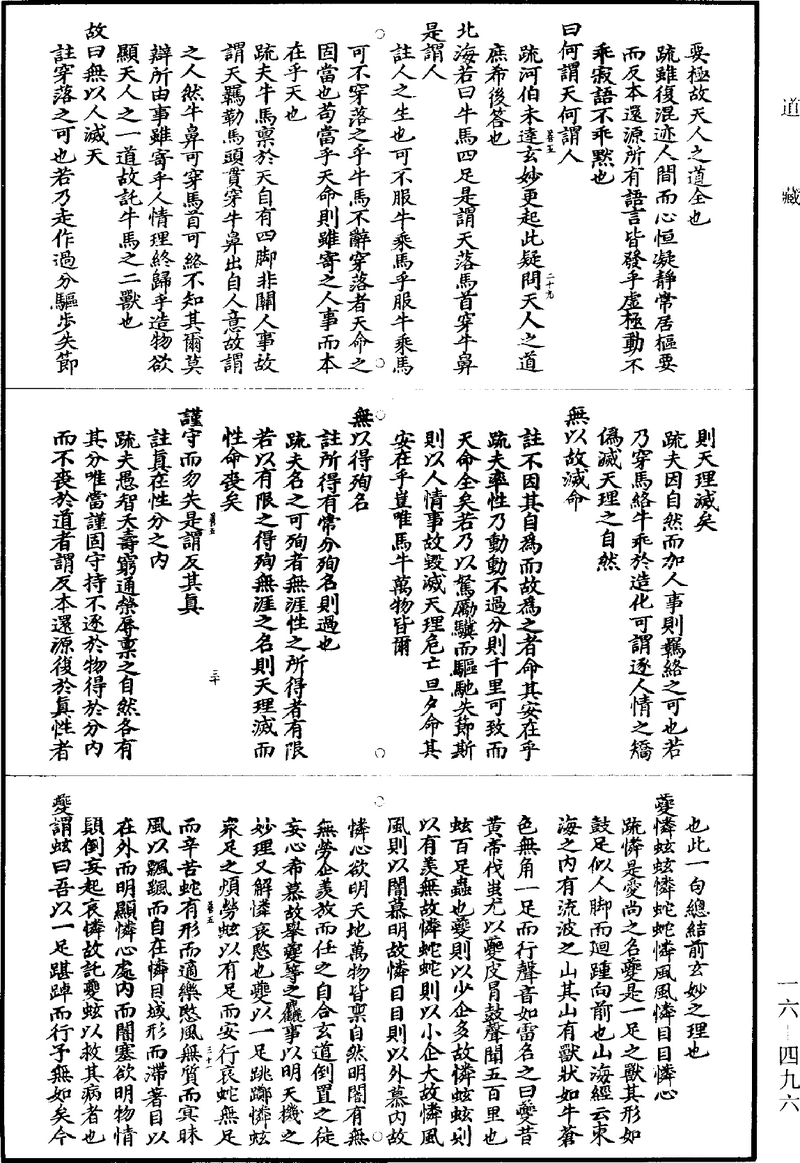 道藏
要極故天人之道全也
疏雖復混迹人間而心恒凝靜常居樞要
而反本還源所有語言皆發乎虛極動不
乖寂語不乖默也
曰何謂天何謂人
疏河伯未達玄妙更起此疑問天人之道
庶希後答也
北海若曰牛馬四足是謂天落馬首穿牛鼻
是謂人
註人之生也可不服牛乘馬乎服牛乘馬
可不穿落之乎牛馬不辭穿落者天命之
固當也苟當乎天命則雖寄之人事而本
在乎天也
疏夫牛馬稟於天自有四脚非關人事故
謂天羈勒馬頭貫穿牛鼻出自人意故謂
之人然牛鼻可穿馬首可絡不知其爾莫
辯所由事雖寄乎人情理終歸乎造物欲
顯天人之一道故託牛馬之二獸也
故曰無以人滅天
註穿落之可也若乃走作過分驅步失節
則天理滅矣
疏夫因自然而加人事則羈絡之可也若
乃穿馬絡牛乖於造化可謂逐人情之矯
僞滅天理之自然
無以故滅命
註不因其自爲而故爲之者命其安在乎
疏夫率性乃動動不過分則千里可致而
天命全矣若乃以駑勵驥而驅馳失節斯
則以人情事故毀滅天理危亡旦夕命其
安在乎豈唯馬牛萬物皆爾
無以得殉名
註所得有常分殉名則過也
疏夫名之可殉者無涯性之所得者有限
若以有限之得殉無涯之名則天理滅而
性命喪矣
謹守而勿失是謂反其真
註真在性分之內
疏夫愚智夭壽窮通榮辱稟之自然各有
其分唯當謹固守持不逐於物得於分內
而不喪於道者謂反本還源復於真性者
也此一句總結前玄妙之理也
夔憐蚿蚿憐蛇蛇憐風風憐目目憐心
疏憐是愛尚之名夔是一足之獸其形如
鼓足似人脚而迴踵向前也山海經云東
海之內有流波之山其山有獸狀如牛蒼
色無角一足而行聲音如雷名之曰夔昔
黃帝伐蚩尤以夔皮冒鼓聲聞五百里也
蚿百足蟲也夔則以少企多故憐蚿蚿則
以有羨無故憐蛇蛇則以小企大故憐風
風則以闇慕明故憐目目則以外慕內故
憐心欲明天地萬物皆稟自然明闇有無
無勞企羨放而任之自合玄道倒置之徒
妄心希慕故舉夔等之麤事以明天機之
妙理又解憐哀愍也夔以一足跳躑憐蚿
眾足之煩勞蚿以有足而安行哀蛇無足
而辛苦蛇有形而適樂愍風無質而冥昧
風以飄颻而自在憐目域形而滯著目以
在外而明顯憐心處內而闇塞欲明物情
顛倒妄起哀憐故託夔蚿以救其病者也
夔謂蚿曰吾以一足趻踔而行予無如矣今
一六—四九六